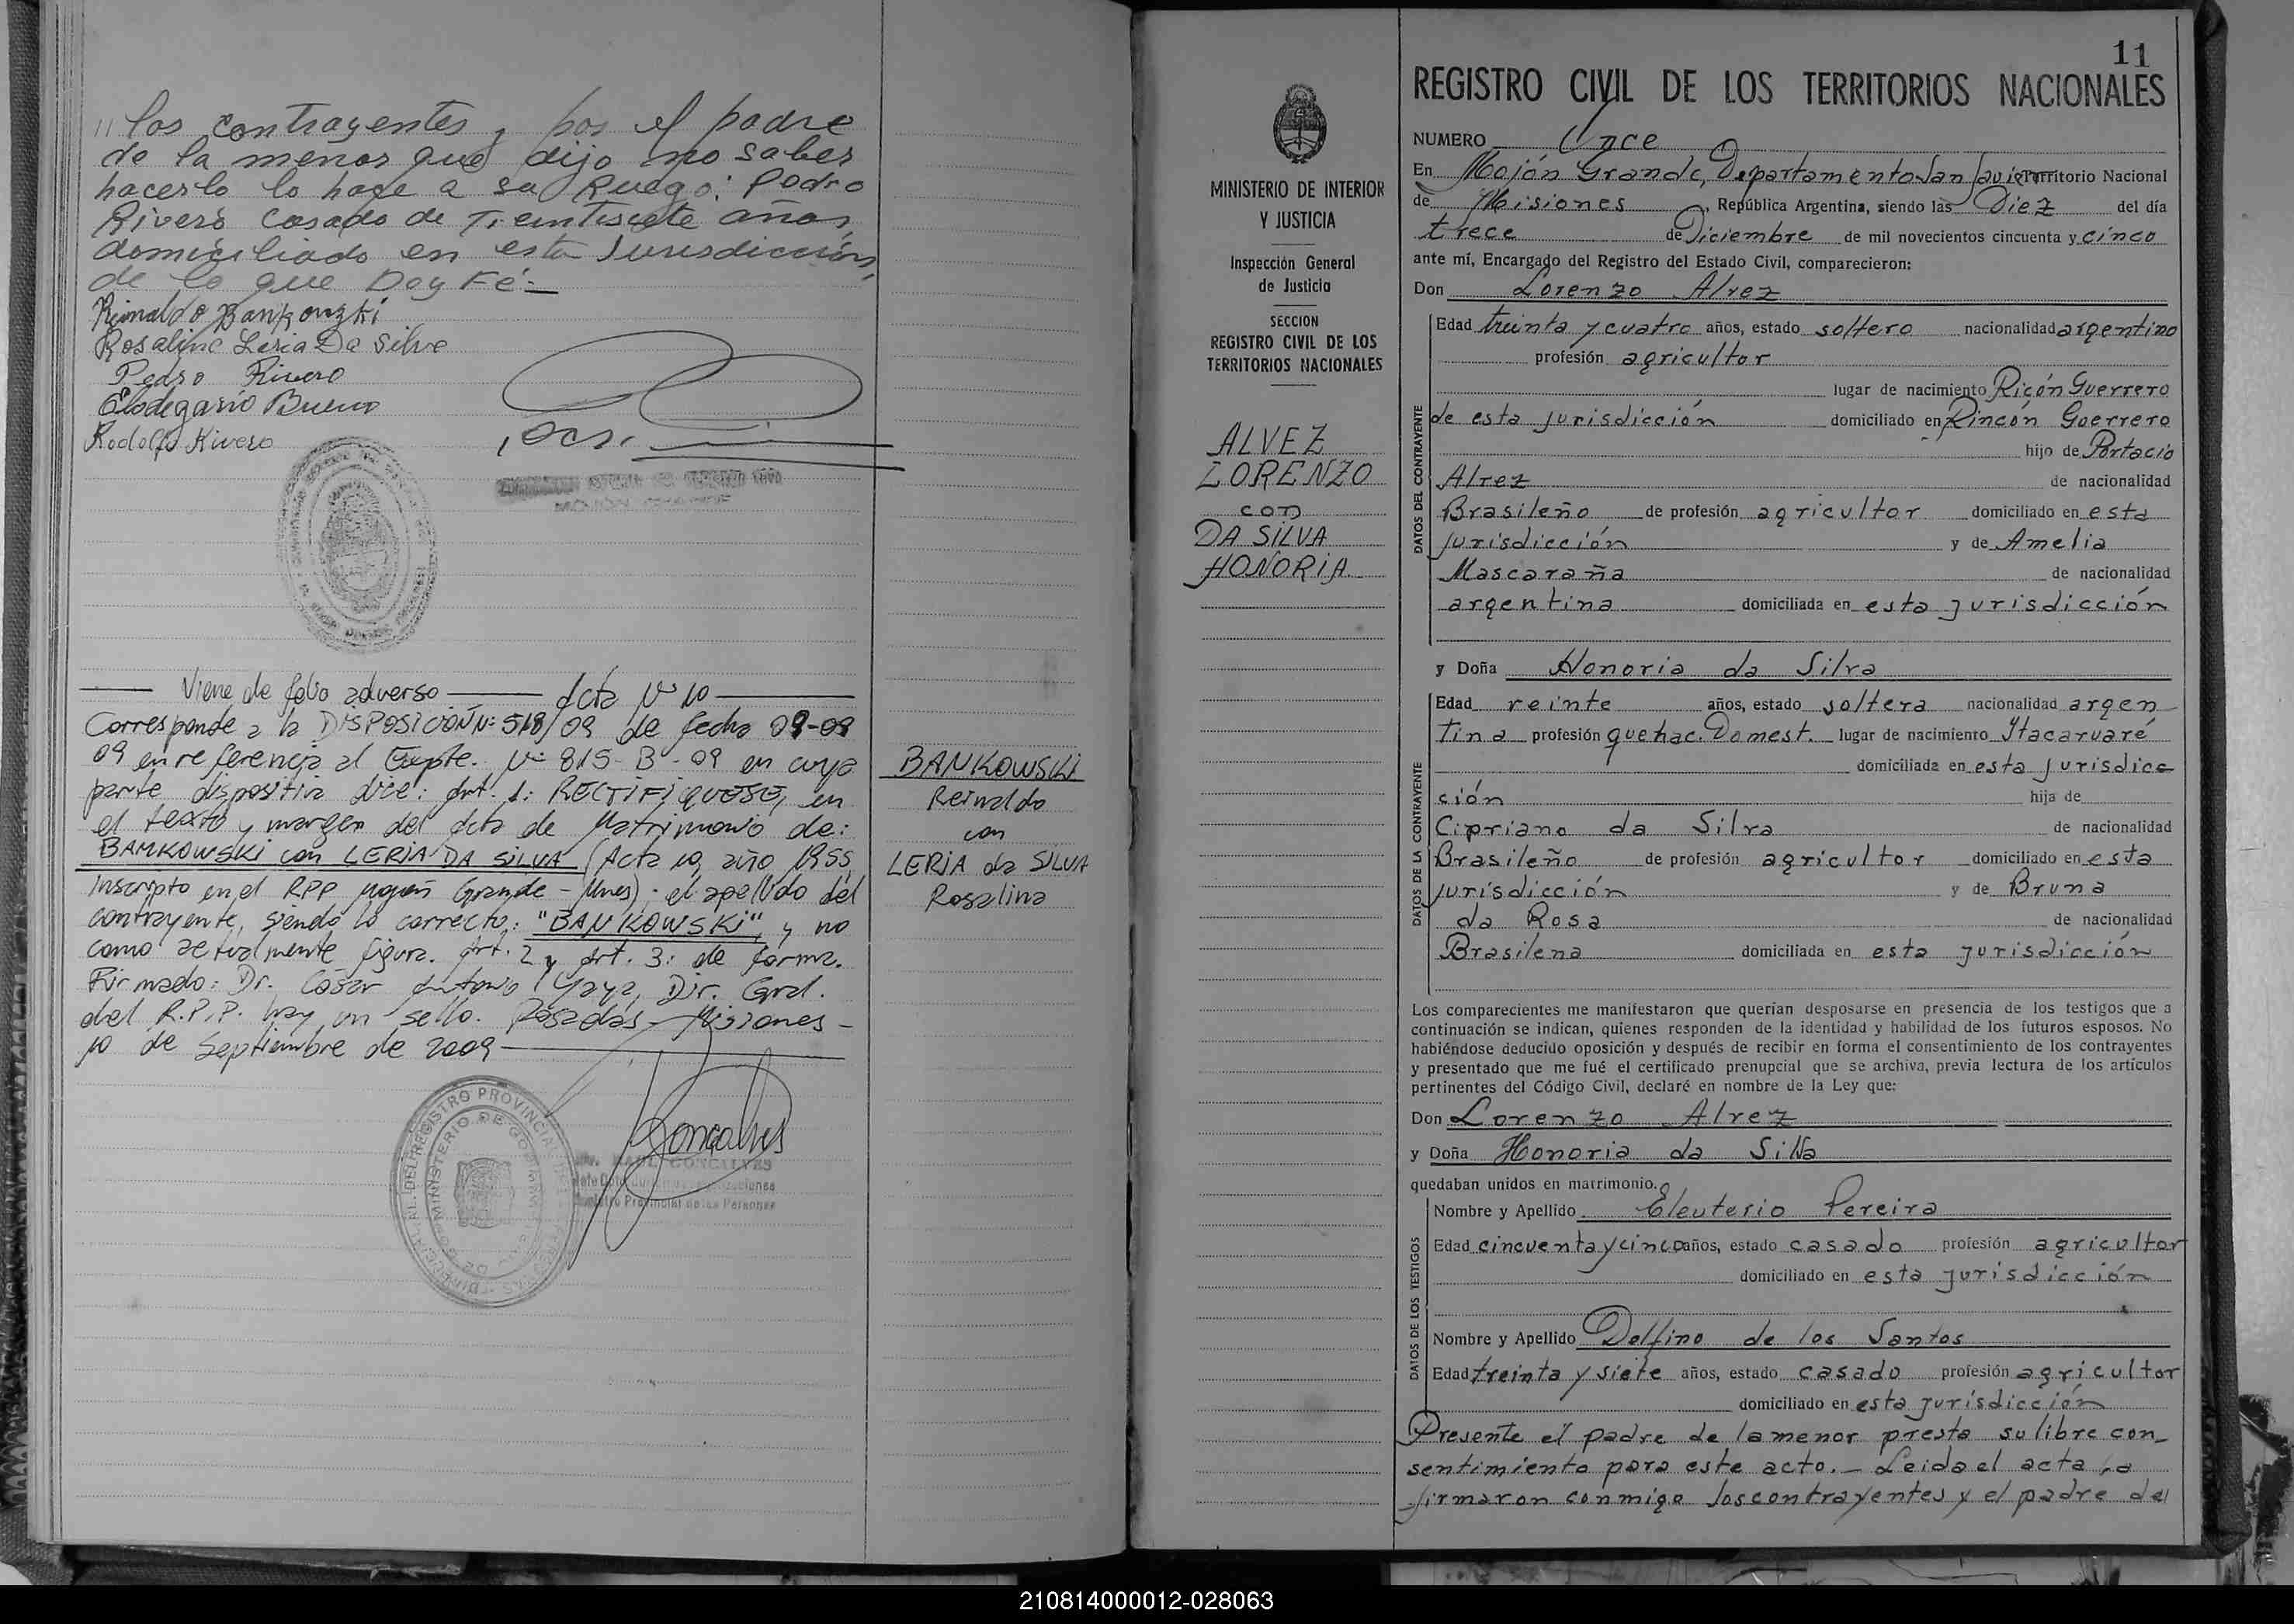 " los contrayentes, por el padre
de la menor que dijo no saber
hacerlo lo hace a su Ruego: Pedro
Rivero casado de Treintisiete años,
domiciliado en esta Jurisdicción,
de lo que Doy Fé.-
Reinaldo Bankowzki
Rosalina Leria Da Silva
Pedro Rivero
Elodegario Bueno
Rodolfo Rivero
Viene de folio adverso — Acta Nº 10
Corresponde a la DISPOSICIÓN Nº 518/09 de fecha 09-09
09 en referencia al Expte. Nº 815-B-09 en cuya
parte dispositiva dice: Art. 1: RECTIFIQUESE, en
el texto y margen del Acta de Matrimonio de:
BAMKOWSKI con LERIA DA SILVA (Acta 10, año 1955
Inscripto en el RPP Mojón Grande - Mnes); el apellido del
contrayente, siendo lo correcto: "BANKOWSKI", y no
como actualmente figura. Art. 2 y Art. 3: de forma.
Firmado: Dr. César Antonio Yaya, Dir. Gral.
del R.P.P. hay un sello. Posadas - Misiones -
10 de Septiembre de 2009
BANKOWSKI
Reinaldo
con
LERIA da SILVA
Rosalina
Goncalves
RAUL GONCALVES
Registro Provincial de las Personas
MINISTERIO DE INTERIOR
Y JUSTICIA
Inspección General
de Justicia
SECCION
REGISTRO CIVIL DE LOS
TERRITORIOS NACIONALES
ALVEZ
LORENZO
con
DA SILVA
HONORIA
11
REGISTRO CIVIL DE LOS TERRITORIOS NACIONALES
NUMERO Once
En Mojón Grande, Departamento San Javier Territorio Nacional
de Misiones, República Argentina, siendo las Diez del día
trece de Diciembre de mil novecientos cincuenta y cinco
ante mí, Encargado del Registro del Estado Civil, comparecieron:
Don Lorenzo Alvez
DATOS DEL CONTRAYENTE
Edad treinta y cuatro años, estado soltero nacionalidad argentino
profesión agricultor
lugar de nacimiento Ricón Guerrero
de esta jurisdicción domiciliado en Rincón Guerrero
hijo de Portacio
Alvez de nacionalidad
Brasileño de profesión agricultor domiciliado en esta
jurisdicción y de Amelia
Mascaraña de nacionalidad
argentina domiciliada en esta jurisdicción
y Doña Honoria da Silva
DATOS DE LA CONTRAYENTE
Edad veinte años, estado soltera nacionalidad argen
tina profesión quehac. Domest. lugar de nacimiento Itacaruaré
domiciliada en esta jurisdicc
ción hija de
Cipriano da Silva de nacionalidad
Brasileño de profesión agricultor domiciliado en esta
jurisdicción y de Bruna
da Rosa de nacionalidad
Brasilena domiciliada en esta jurisdicción
Los comparecientes me manifestaron que querían desposarse en presencia de los testigos que a
continuación se indican, quienes responden de la identidad y habilidad de los futuros esposos. No
habiéndose deducido oposición y después de recibir en forma el consentimiento de los contrayentes
y presentado que me fué el certificado prenupcial que se archiva, previa lectura de los artículos
pertinentes del Código Civil, declaré en nombre de la Ley que:
Don Lorenzo Alvez
y Doña Honoria da Silva
quedaban unidos en matrimonio.
DATOS DE LOS TESTIGOS
Nombre y Apellido Eleuterio Pereira
Edad cincuenta y cinco años, estado casado profesión agricultor
domiciliado en esta jurisdicción
Nombre y Apellido Delfino de los Santos
Edad treinta y siete años, estado casado profesión agricultor
domiciliado en esta jurisdicción
Presente el padre de la menor presta su libre con_
sentimiento para este acto.- Leida el acta la
firmaron conmigo los contrayentes y el padre de
210814000012-028063